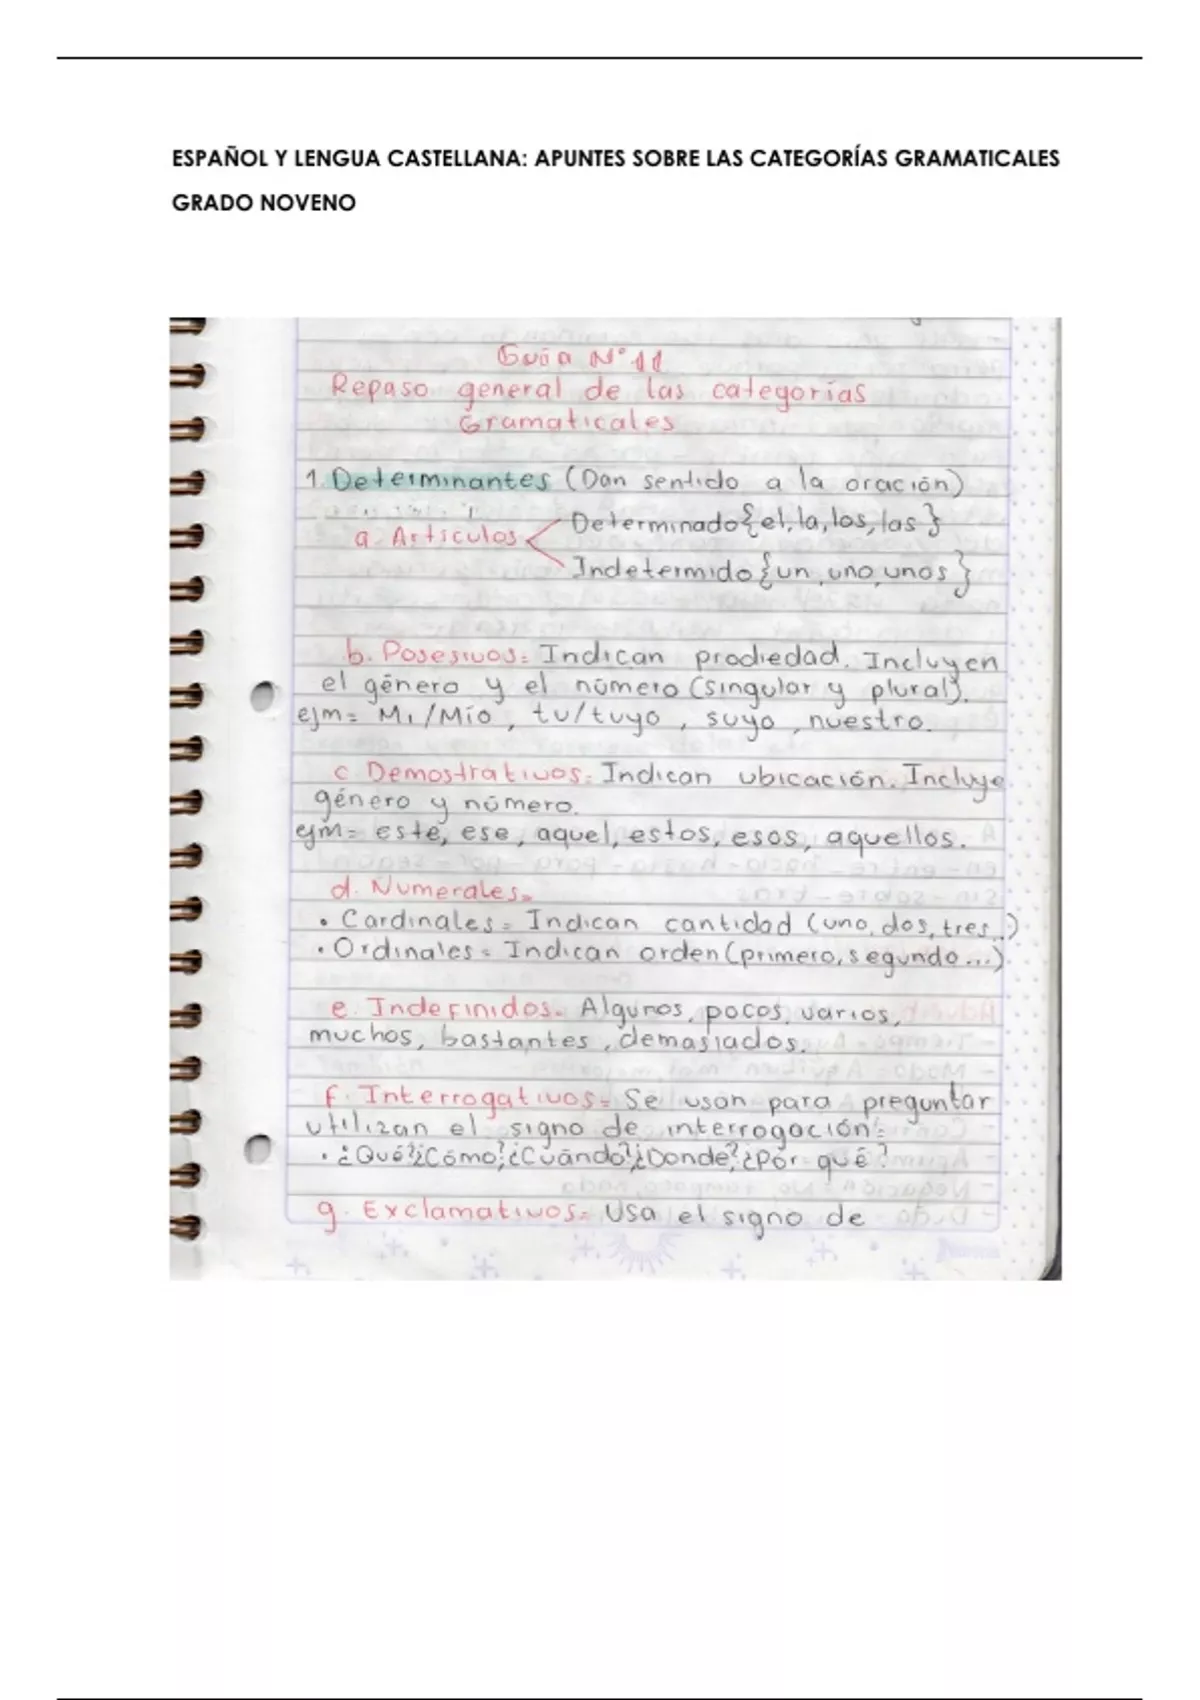 ESPAÑOL Y LENGUA CASTELLANA: APUNTES SOBRE LAS CATEGORÍAS GRAMATICALES
GRADO NOVENO
Guía N° 11
Repaso general de las categorías
Gramaticales
1. Determinantes (Dan sentido a la oración)
Determinado {el, la, los, las}
a. Artículos
Indetermido {un, uno, unos}
b. Posesivos: Indican prodiedad. Incluyen
el género y el número (singular y plural).
ejm= Mi/Mío, tu/tuyo, suyo, nuestro.
c. Demostrativos: Indican ubicación. Incluye
género y número.
ejm= este, ese, aquel, estos, esos, aquellos.
d. Numerales=
• Cardinales= Indican cantidad (uno, dos, tres...)
• Ordinales= Indican orden (primero, segundo...)
e. Indefinidos= Algunos, pocos, varios,
muchos, bastantes, demasiados.
f. Interrogativos= Se usan para preguntar
utilizan el signo de interrogación:
• ¿Qué?¿Cómo?¿Cuándo?¿Donde?¿Por qué?
g. Exclamativos= Usa el signo de